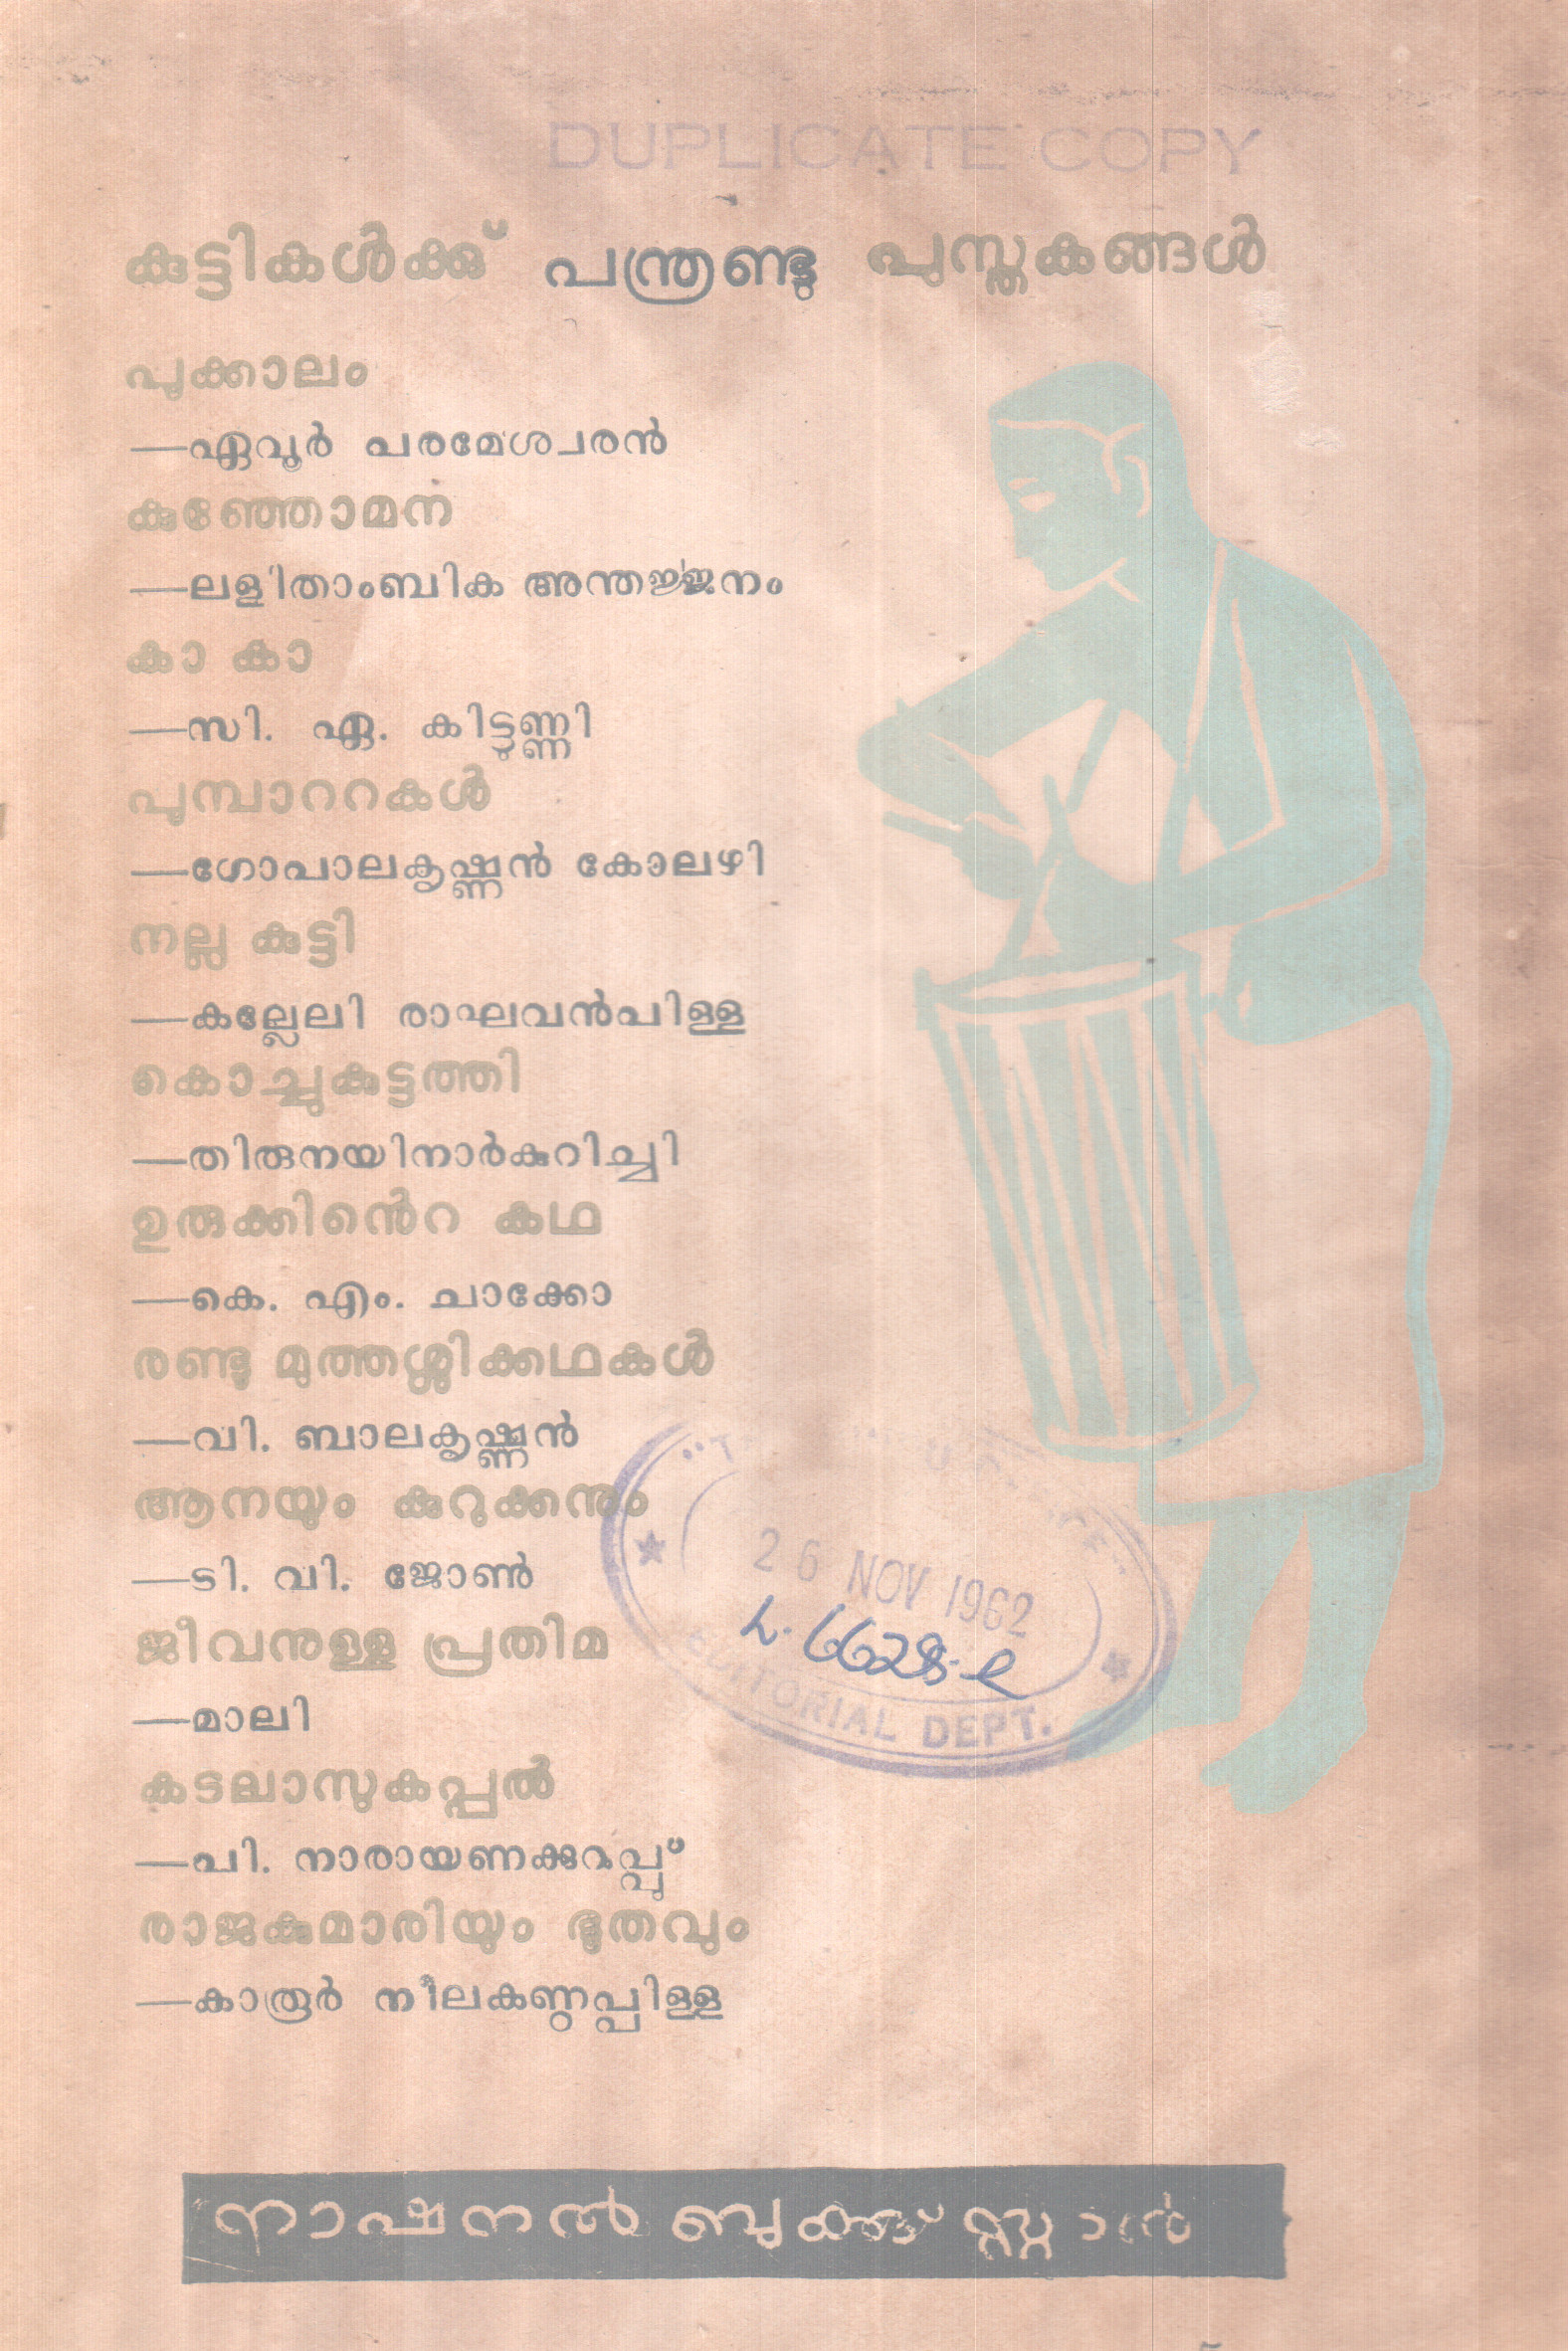 DUPLICATE COPY
കുട്ടികൾക്കു് പന്ത്രണ്ടു പുസ്തകങ്ങൾ
പൂക്കാലം
—ഏവൂർ പരമേശ്വരൻ
കുഞ്ഞോമന
—ലളിതാംബിക അന്തജ്ജനം
കാ കാ
—സി. ഏ. കിട്ടുണ്ണി
പൂമ്പാററകൾ
—ഗോപാലകൃഷ്ണൻ കോലഴി
നല്ല കുട്ടി
—കല്ലേലി രാഘവൻപിള്ള
കൊച്ചുകുട്ടത്തി
—തിരുനയിനാർകുറിച്ചി
ഉരുക്കിൻെറ കഥ
—കെ. എം. ചാക്കോ
രണ്ടു മുത്തശ്ശിക്കഥകൾ
—വി. ബാലകൃഷ്ണൻ
ആനയും കുറുക്കനും
—ടി. വി. ജോൺ
26 NOV 1962
ജീവനുള്ള പ്രതിമ
EDITORIAL DEPT.
—മാലി
കടലാസുകപ്പൽ
—പി. നാരായണക്കുറുപ്പു്
രാജകുമാരിയും ഭൂതവും
—കാരൂർ നീലകണ്ഠപ്പിള്ള
നാഷനൽ ബുക്ക് സ്റ്റാൾ